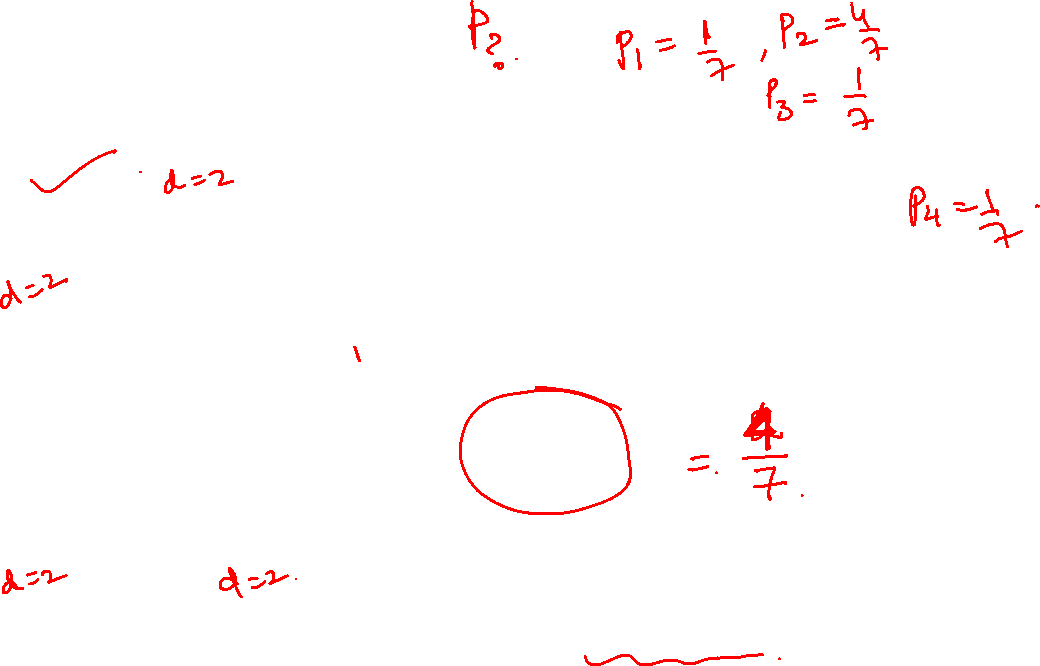 P? P₁ = 1/7 , P₂ = 4/7
P₃ = 1/7
d=2
P₄ = 1/7
d=2
= 4/7
d=2 d=2